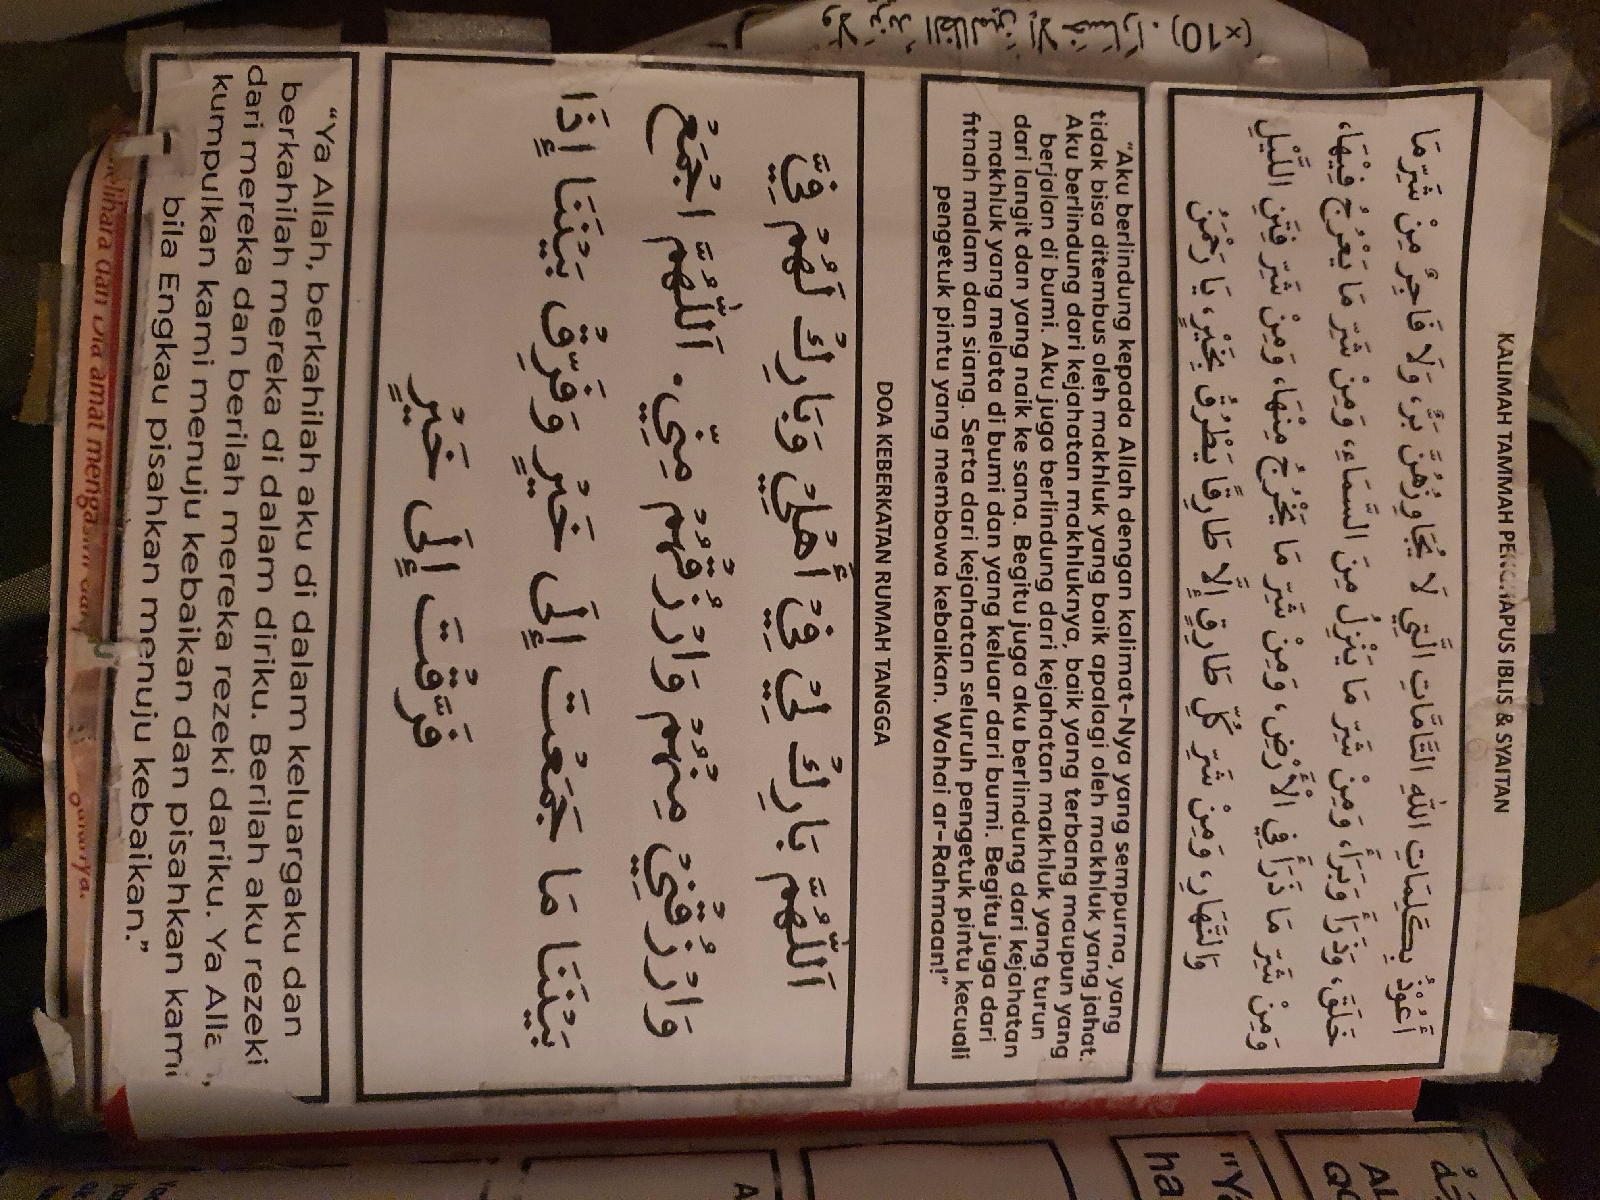 KALIMAH TAMMAH PENGHAPUS IBLIS & SYAITAN
أَعُوْذُ بِكَلِمَاتِ اللهِ التَّامَّاتِ الَّتِي لَا يُجَاوِزُهُنَّ بَرٌّ، وَلَا فَاجِرٌ مِنْ شَرِّ مَا
خَلَقَ، وَذَرَأَ وَبَرَأَ، وَمِنْ شَرِّ مَا يَنْزِلُ مِنَ السَّمَاءِ، وَمِنْ شَرِّ مَا يَعْرُجُ فِيْهَا،
وَمِنْ شَرِّ مَا ذَرَأَ فِي الْأَرْضِ، وَمِنْ شَرِّ مَا يَخْرُجُ مِنْهَا، وَمِنْ شَرِّ فِتَنِ اللَّيْلِ
وَالنَّهَارِ، وَمِنْ شَرِّ كُلِّ طَارِقٍ إِلَّا طَارِقًا يَطْرُقُ بِخَيْرٍ، يَا رَحْمَنُ
"Aku berlindung kepada Allah dengan kalimat-Nya yang sempurna, yang
tidak bisa ditembus oleh makhluk yang baik apalagi oleh makhluk yang jahat.
Aku berlindung dari kejahatan makhluknya, baik yang terbang maupun yang
berjalan di bumi. Aku juga berlindung dari kejahatan makhluk yang turun
dari langit dan yang naik ke sana. Begitu juga aku berlindung dari kejahatan
makhluk yang melata di bumi dan yang keluar dari bumi. Begitu juga dari
fitnah malam dan siang. Serta dari kejahatan seluruh pengetuk pintu kecuali
pengetuk pintu yang membawa kebaikan. Wahai ar-Rahmaan!"
DOA KEBERKATAN RUMAH TANGGA
اَللّٰهُمَّ بَارِكْ لِيْ فِيْ أَهْلِيْ وَبَارِكْ لَهُمْ فِيَّ
وَارْزُقْنِيْ مِنْهُمْ وَارْزُقْهُمْ مِنِّي. اَللّٰهُمَّ اجْمَعْ
بَيْنَنَا مَا جَمَعْتَ إِلَى خَيْرٍ وَفَرِّقْ بَيْنَنَا إِذَا
فَرَّقْتَ إِلَى خَيْرٍ
"Ya Allah, berkahilah aku di dalam keluargaku dan
berkahilah mereka di dalam diriku. Berilah aku rezeki
dari mereka dan berilah mereka rezeki dariku. Ya Alla ,
kumpulkan kami menuju kebaikan dan pisahkan kami
bila Engkau pisahkan menuju kebaikan."
dan Dia amat
(×10)
"Y
ha
A